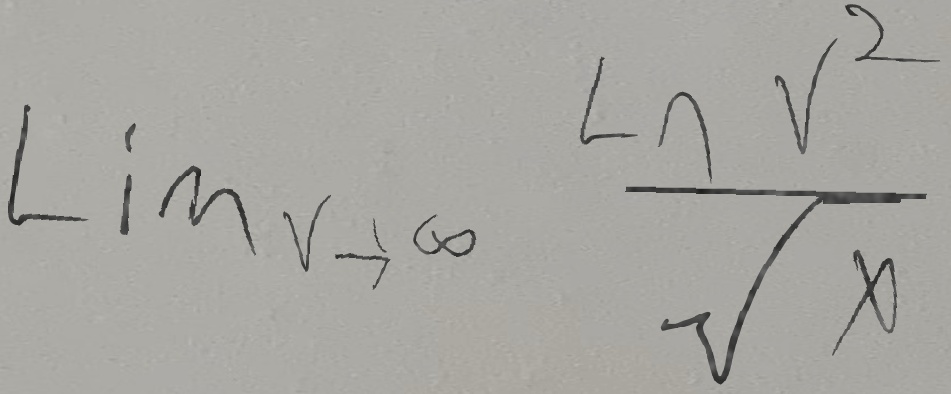 Lim v→∞ Ln v² / √x